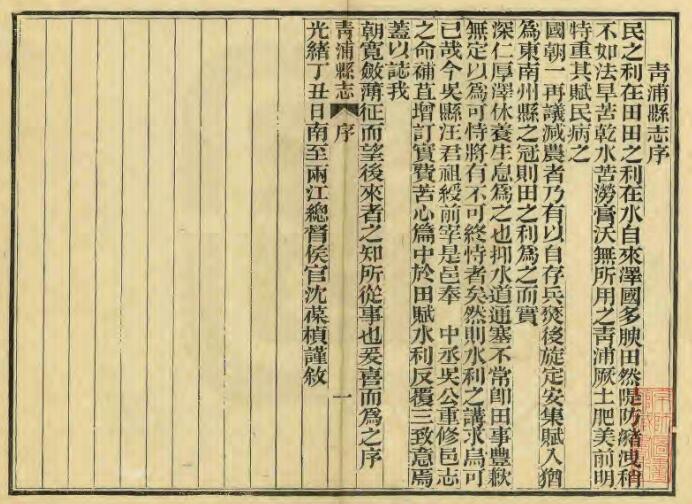 青浦縣志序
民之利在田田之利在水自來澤國多腴田然隄防瀦洩稍
不如法旱苦乾水苦澇膏沃無所用之青浦厥土肥美前明
特重其賦民病之
國朝一再議減農者乃有以自存兵燹後旋定安集賦入猶
爲東南州縣之冠則田之利爲之而實
深仁厚澤休養生息爲之也抑水道通塞不常卽田事豐歉
無定以爲可恃將有不可終恃者矣然則水利之講求烏可
已哉今吳縣汪君祖綬前宰是邑奉 中丞吳公重修邑志
之命補苴增訂實費苦心篇中於田賦水利反覆三致意焉
蓋以誌我
朝寬斂薄征而望後來者之知所從事也爰喜而爲之序
青浦縣志 序 一
光緒丁丑日南至兩江總督侯官沈葆楨謹敘